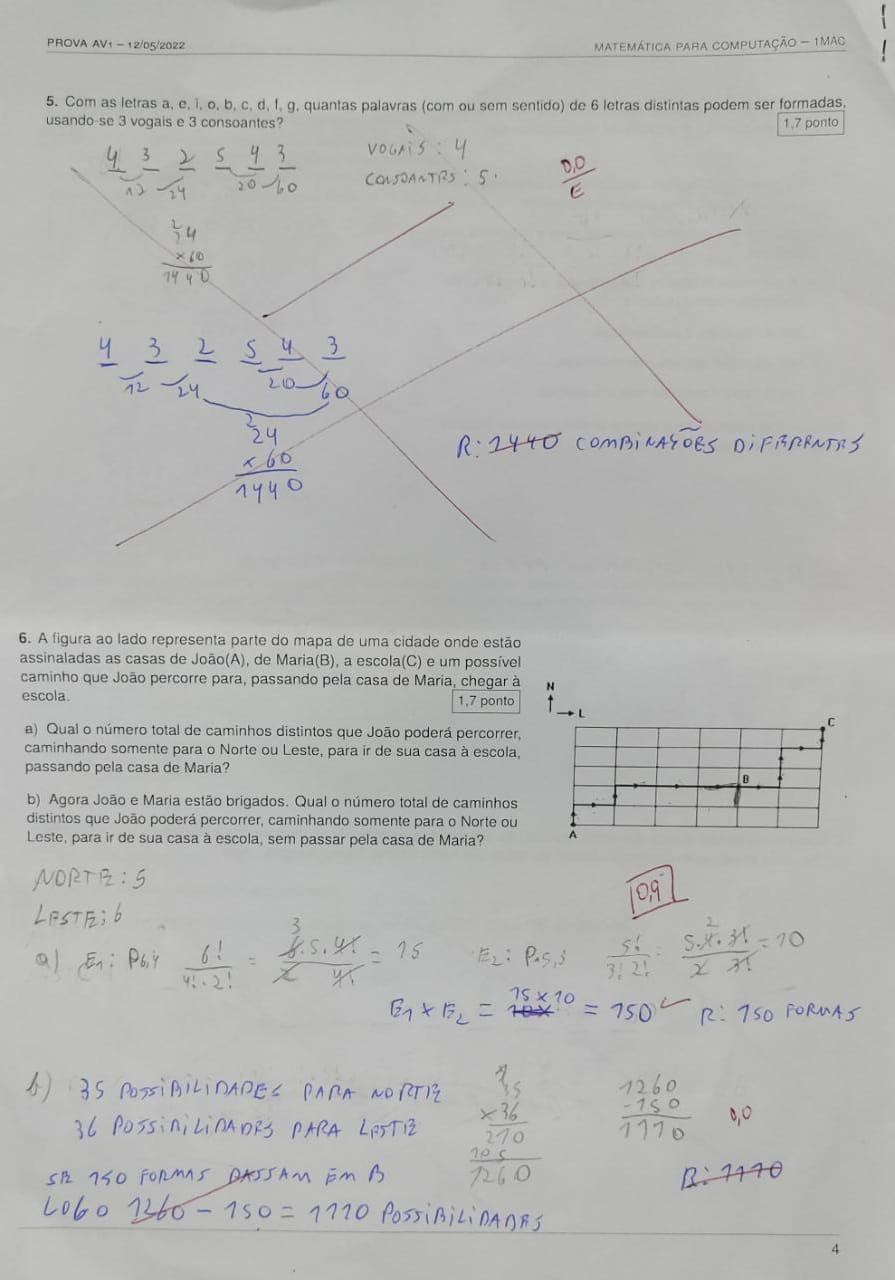 PROVA AV1 – 12/05/2022
MATEMÁTICA PARA COMPUTAÇÃO – 1MAC
5. Com as letras a, e, i, o, b, c, d, f, g, quantas palavras (com ou sem sentido) de 6 letras distintas podem ser formadas,
usando-se 3 vogais e 3 consoantes?
1,7 ponto
4 3 2 5 4 3
12 24 20 60
VOGAIS: 4
CONSOANTES: 5
0,0
E
2
24
x60
1440
4 3 2 5 4 3
12 24 20 60
2
24
x 60
1440
R: 1440 COMBINAÇÕES DIFERENTES
6. A figura ao lado representa parte do mapa de uma cidade onde estão
assinaladas as casas de João(A), de Maria(B), a escola(C) e um possível
caminho que João percorre para, passando pela casa de Maria, chegar à
escola.
1,7 ponto
a) Qual o número total de caminhos distintos que João poderá percorrer,
caminhando somente para o Norte ou Leste, para ir de sua casa à escola,
passando pela casa de Maria?
b) Agora João e Maria estão brigados. Qual o número total de caminhos
distintos que João poderá percorrer, caminhando somente para o Norte ou
Leste, para ir de sua casa à escola, sem passar pela casa de Maria?
N
L
C
B
A
NORTE: 5
LESTE: 6
0,9
a) E1: P6,4 6!/4!·2! = 6.5.4!/2 4! = 15
3
E2: P5,3 5!/3! 2! = 5.4.3!/2 3! = 10
2
E1 x E2 = 15 x 10 = 150 R: 150 FORMAS
b) 35 POSSIBILIDADES PARA NORTE
36 POSSIBILIDADES PARA LESTE
SE 150 FORMAS PASSAM EM B
LOGO 1260 – 150 = 1110 POSSIBILIDADES
35
x36
210
105
1260
1260
-150
1110
0,0
R: 1110
4